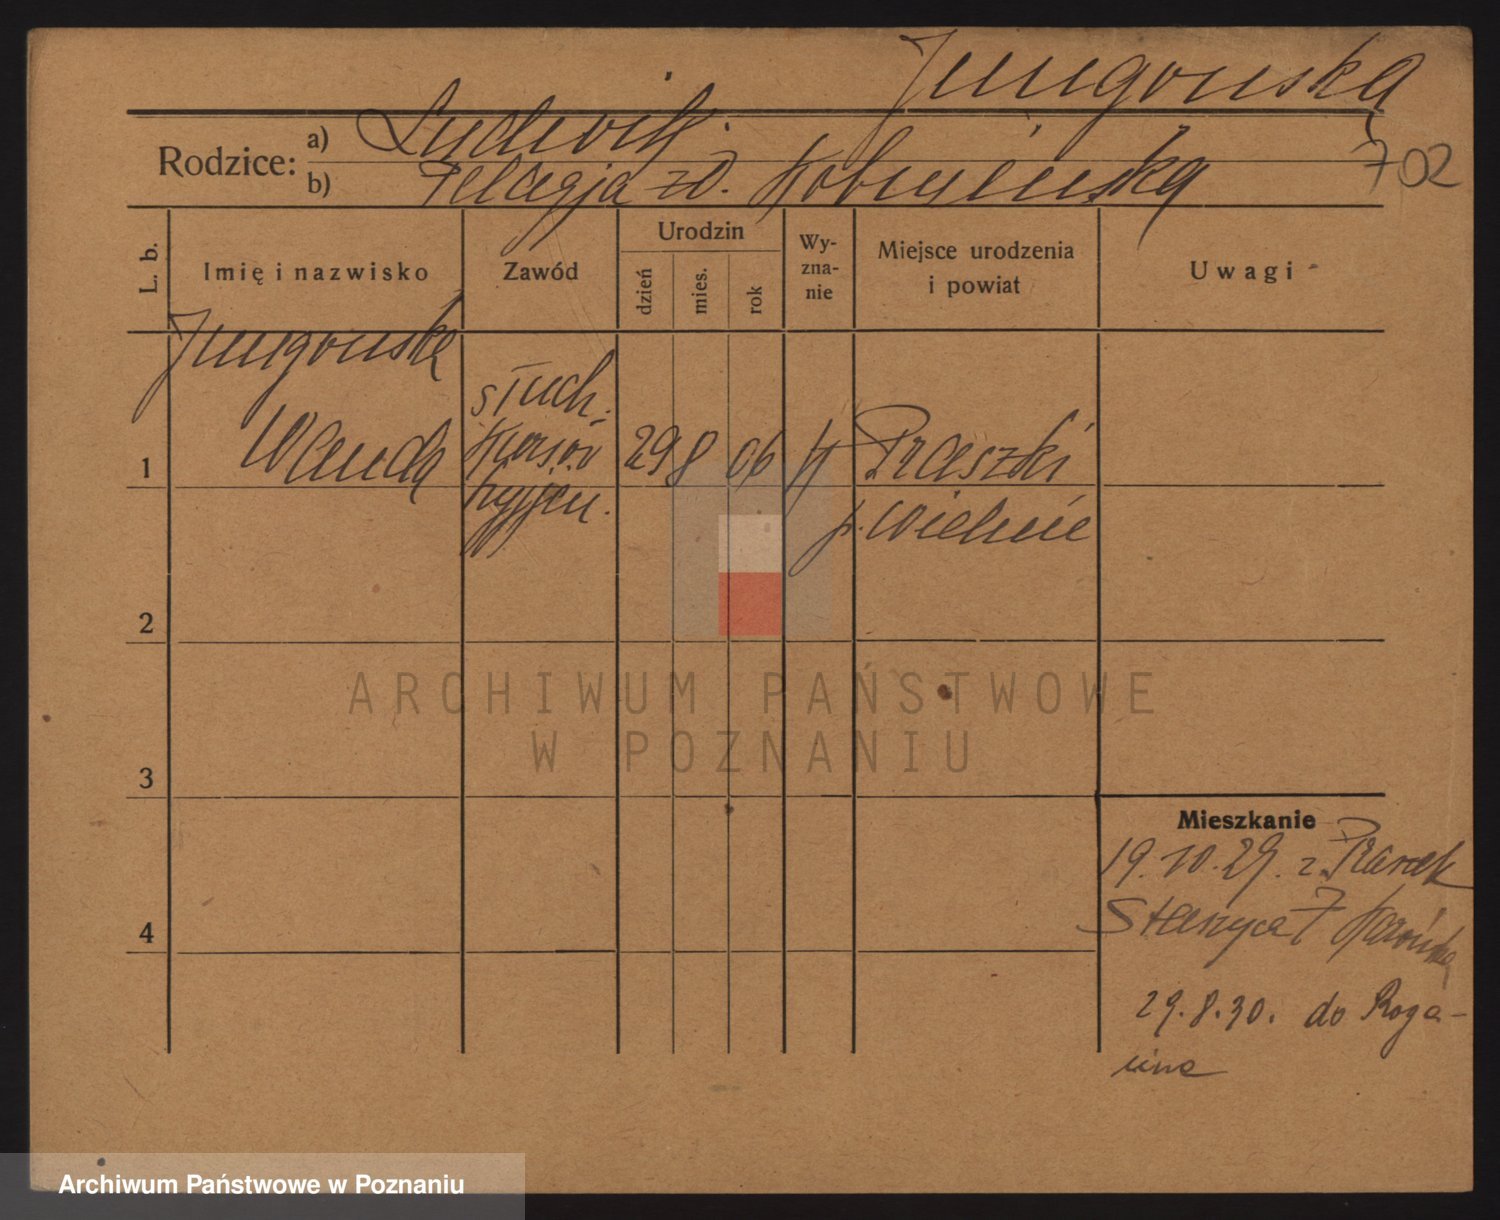 Jungowska
702
Rodzice:
a) Ludwik
b) Pelagja zd. Kobusińska
L. b.
Imię i nazwisko
Zawód
Urodzin
dzień
mies.
rok
Wy-
zna-
nie
Miejsce urodzenia
i powiat
Uwagi
Jungowska
Wanda
słuch.
kursów
hygien.
1
29 8 06
K
Praszki
p. Wieluń
2
3
4
Mieszkanie
19.10.29. z
Staszyca 7
29.8.30. do Roga-
lina
ARCHIWUM PAŃSTWOWE
W POZNANIU
Archiwum Państwowe w Poznaniu